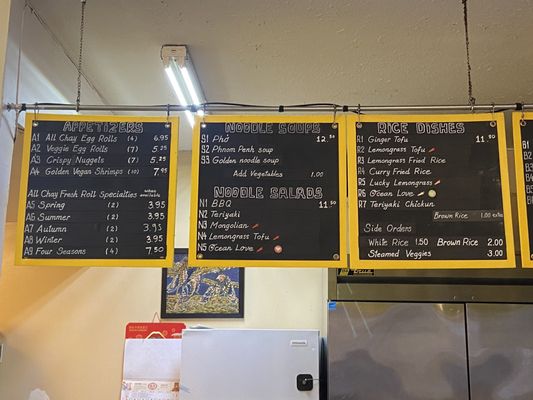 APPETIZERS
A1 All Chay Egg Rolls (4) 6.95
A2 Veggie Egg Rolls (7) 5.25
A3 Crispy Nuggets (7) 5.25
A4 Golden Vegan Shrimps (10) 7.95
All Chay Fresh Roll Specialties
A5 Spring (2) 3.95
A6 Summer (2) 3.95
A7 Autumn (2) 3.95
A8 Winter (2) 3.95
A9 Four Seasons (4) 7.50
NOODLE SOUPS
S1 Phở 12.50
S2 Phnom Penh soup
S3 Golden noodle soup
Add Vegetables 1.00
NOODLE SALADS
N1 BBQ 11.50
N2 Teriyaki
N3 Mongolian
N4 Lemongrass Tofu
N5 Ocean Love
RICE DISHES
R1 Ginger Tofu 11.50
R2 Lemongrass Tofu
R3 Lemongrass Fried Rice
R4 Curry Fried Rice
R5 Lucky Lemongrass
R6 Ocean Love
R7 Teriyaki Chicken
Brown Rice 1.00 extra
Side Orders
White Rice 1.50 Brown Rice 2.00
Steamed Veggies 3.00